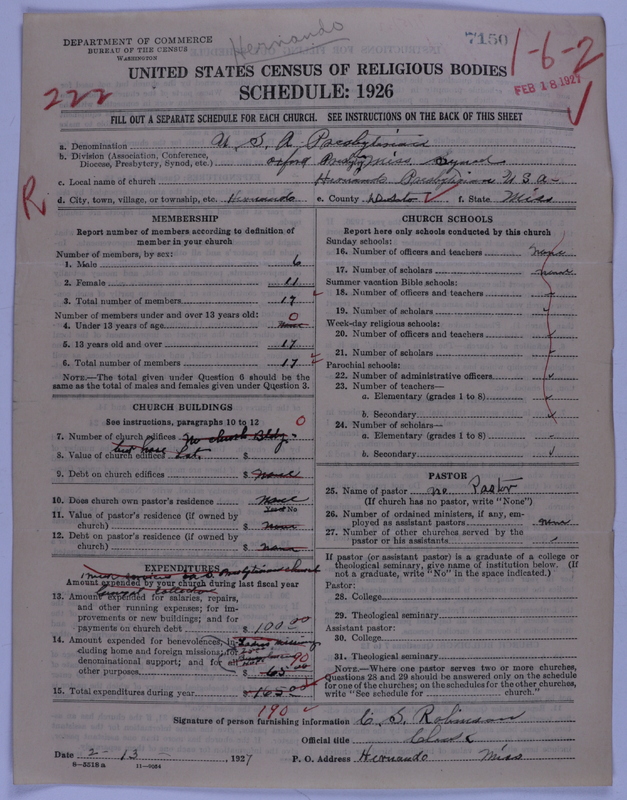 Hernando
7150
1-6-2
FEB 18 1927
222
R
DEPARTMENT OF COMMERCE
BUREAU OF THE CENSUS
WASHINGTON
UNITED STATES CENSUS OF RELIGIOUS BODIES
SCHEDULE: 1926
FILL OUT A SEPARATE SCHEDULE FOR EACH CHURCH. SEE INSTRUCTIONS ON THE BACK OF THIS SHEET
a. Denomination U. S. A. Presbyterian
b. Division (Association, Conference,
Diocese, Presbytery, Synod, etc.) Oxford Miss Synod
c. Local name of church Hernando Presbyterian U.S.A-
d. City, town, village, or township, etc. Hernando e. County DeSoto f. State Miss
MEMBERSHIP
Report number of members according to definition of
member in your church
Number of members, by sex:
1. Male 6
2. Female 11
3. Total number of members 17
Number of members under and over 13 years old:
4. Under 13 years of age None 0
5. 13 years old and over 17
6. Total number of members 17
NOTE.—The total given under Question 6 should be the
same as the total of males and females given under Question 3.
CHURCH BUILDINGS
See instructions, paragraphs 10 to 12
7. Number of church edifices No church Bldg. 0
8. Value of church edifices but have Lot. $
9. Debt on church edifices $ None
10. Does church own pastor's residence None
Yes or No
11. Value of pastor's residence (if owned by
church) $ None
12. Debt on pastor's residence (if owned by
church) $ None
EXPENDITURES
Amount expended by your church during last fiscal year
13. Amount expended for salaries, repairs,
and other running expenses; for im-
provements or new buildings; and for
payments on church debt $ 100.00
14. Amount expended for benevolences, in-
cluding home and foreign missions; for
denominational support; and for all
other purposes 90 $ 65.00
15. Total expenditures during year $ 165.00
190
CHURCH SCHOOLS
Report here only schools conducted by this church
Sunday schools:
16. Number of officers and teachers None
17. Number of scholars None
Summer vacation Bible schools:
18. Number of officers and teachers
19. Number of scholars
Week-day religious schools:
20. Number of officers and teachers
21. Number of scholars
Parochial schools:
22. Number of administrative officers
23. Number of teachers—
a. Elementary (grades 1 to 8)
b. Secondary
24. Number of scholars—
a. Elementary (grades 1 to 8)
b. Secondary
PASTOR
25. Name of pastor no Pastor
(If church has no pastor, write "None")
26. Number of ordained ministers, if any, em-
ployed as assistant pastors none
27. Number of other churches served by the
pastor or his assistants
If pastor (or assistant pastor) is a graduate of a college or
theological seminary, give name of institution below. (If
not a graduate, write "No" in the space indicated.)
Pastor:
28. College
29. Theological seminary
Assistant pastor:
30. College
31. Theological seminary
NOTE.—Where one pastor serves two or more churches,
Questions 28 and 29 should be answered only on the schedule
for one of the churches; on the schedules for the other churches,
write "See schedule for church."
Signature of person furnishing information C. S. Robinson
Official title Clerk
Date 2-13-, 1927 P. O. Address Hernando Miss
8-5518a 11-9054